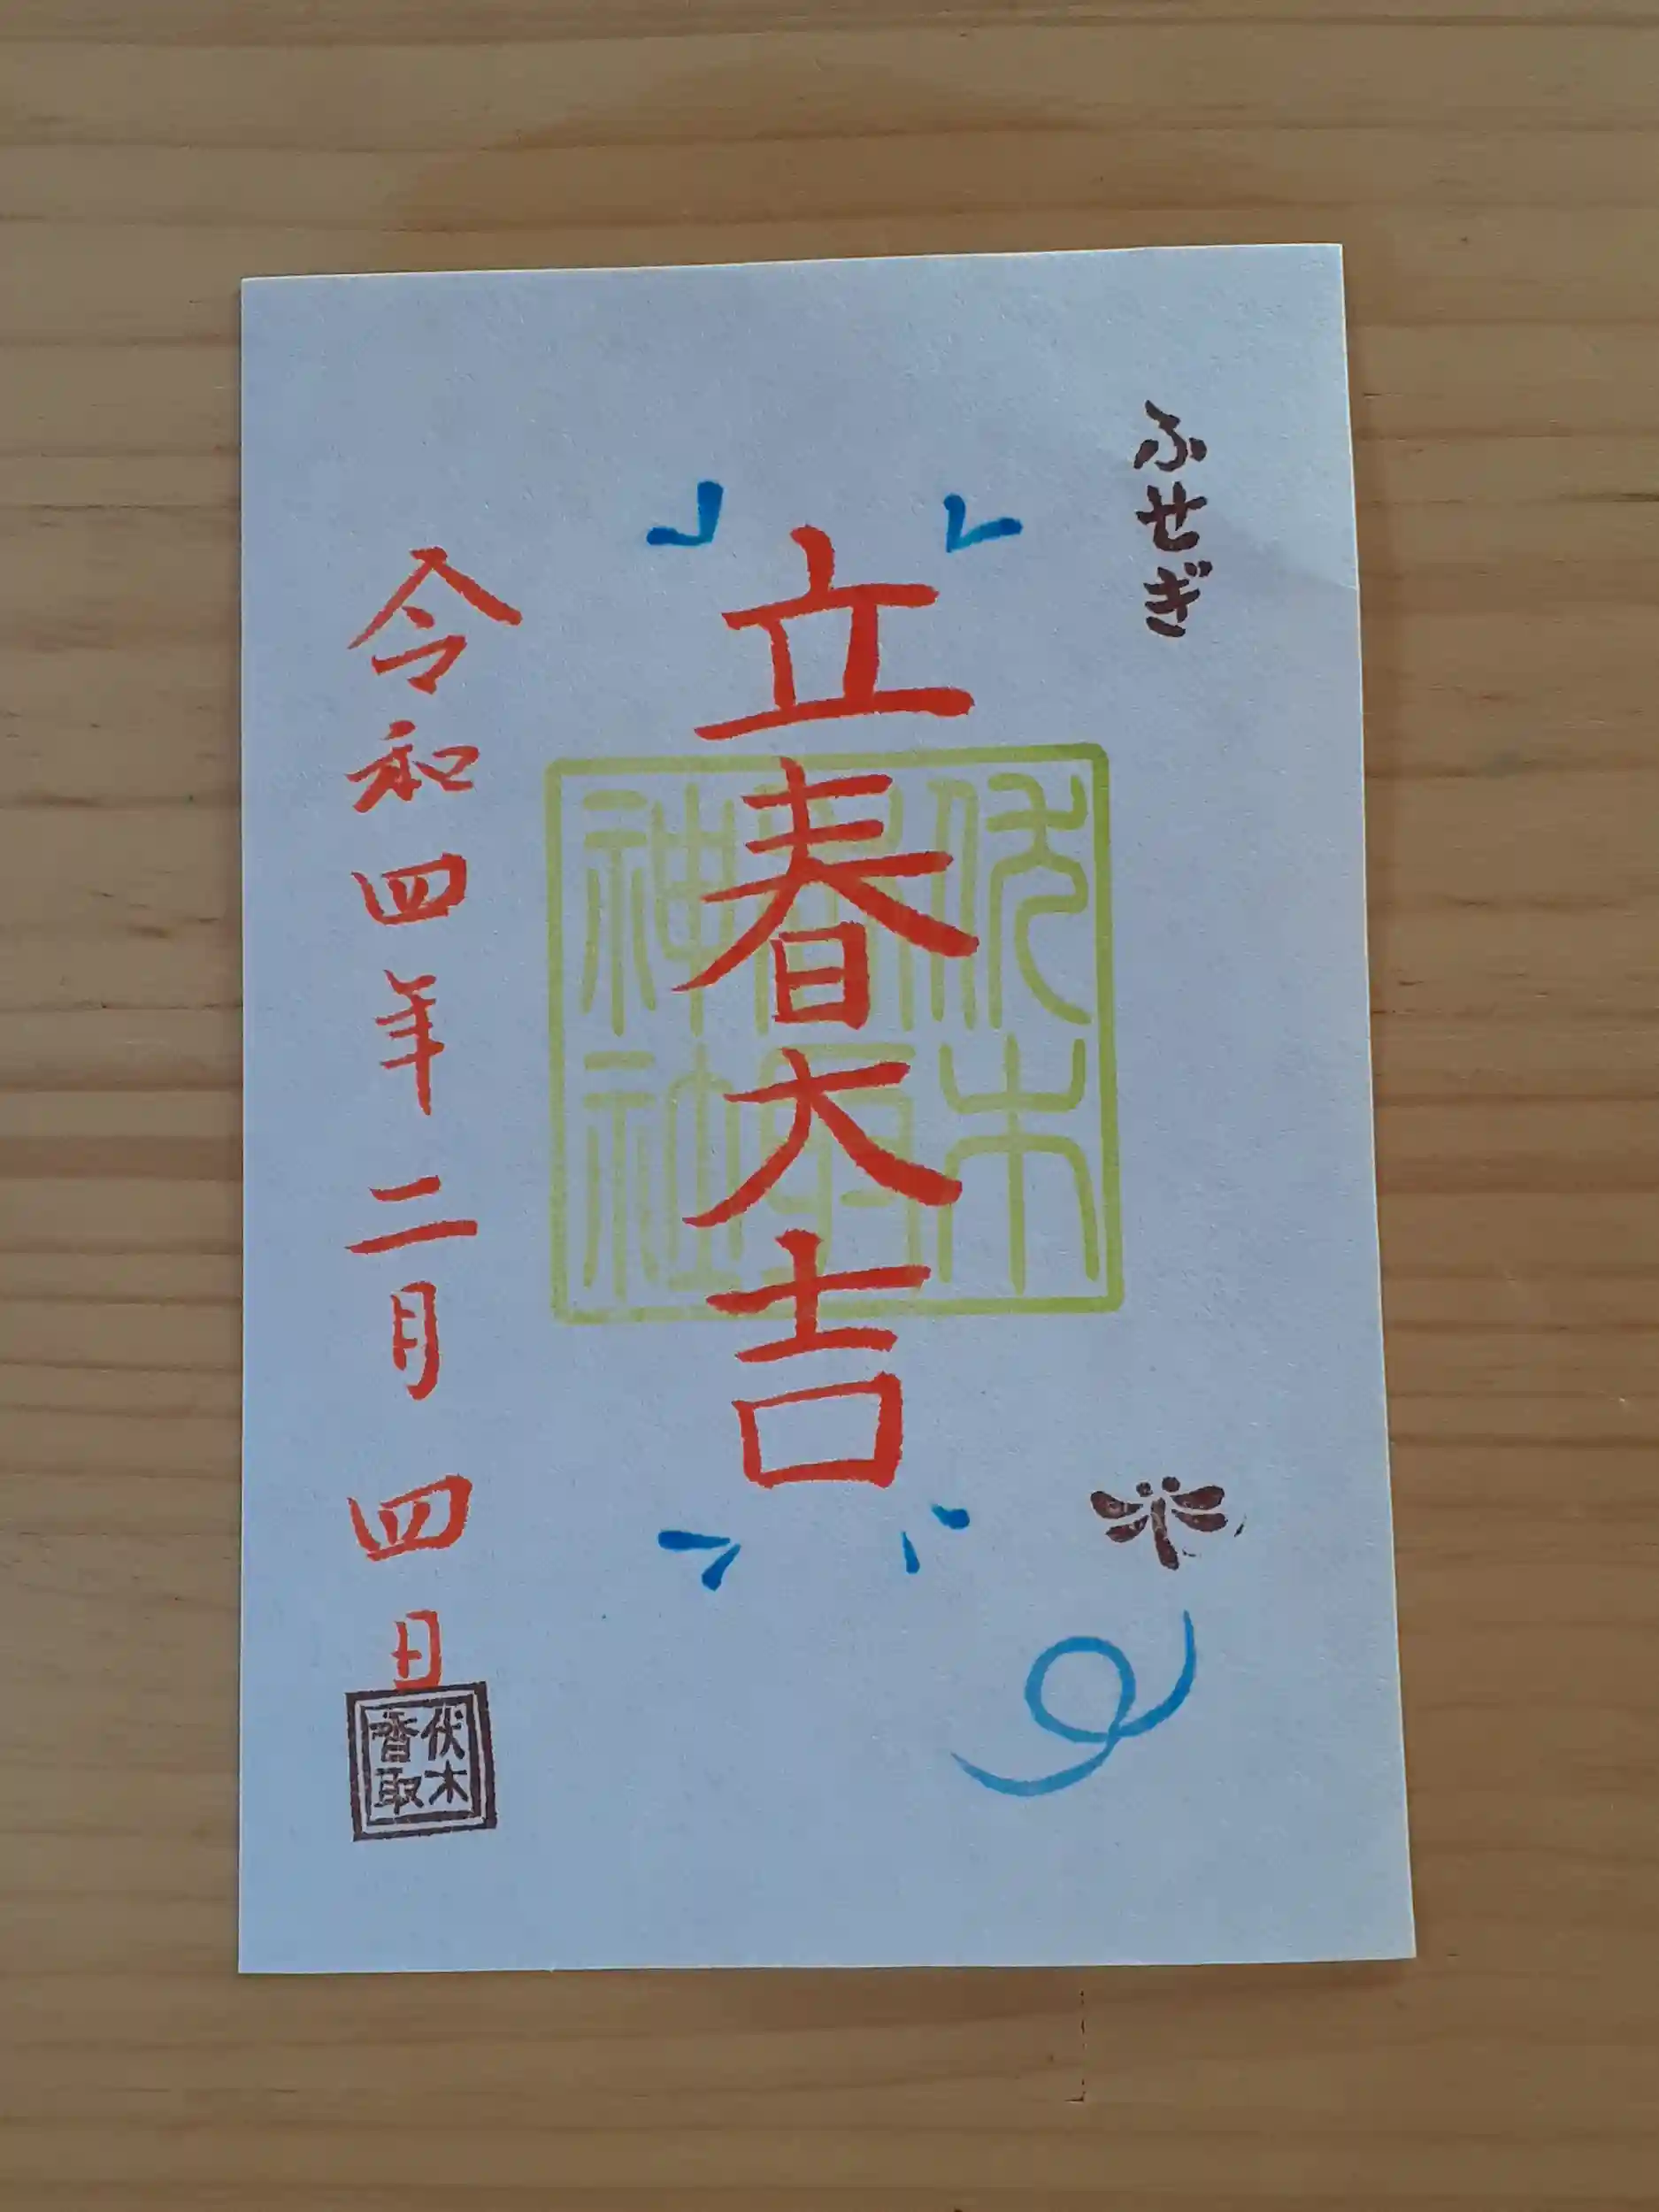 ふせぎ
立春大吉
伏木香取神社
令和四年二月四日
伏木
香取